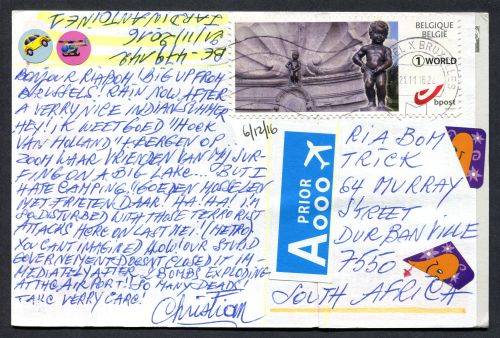 JARDINANTOINE1
21/11/2016
BE-
BONJOUR RIABOM! BIG UP FROM
BRUSSELS! RAIN NOW AFTER
A VERRY NICE INDIANSUMMER
HEY! IK WEET GOED "HOEK
VAN HOLLAND" + BERGEN OP
ZOOM WAAR VRIENDEN VAN MIJ SUR-
FING ON A BIG LAKE... BUT I
HATE CAMPING! GOEDEN MOSSELEN
MET FRIETEN DAAR! AA! AA! I'M
SO DISTURBED WITH THOSE TERRORIST
ATTACKS HERE ON LAST MEI! (METRO)
YOU CANT IMAGINED NOW! OUR STUPID
GOVERNEMENT DOESNT CLOSED IT IM-
MEDIATELY AFTER 2 BOMBS EXPLODING
AT THE AIRPORT! SO MANY DEADS!
TAKE VERRY CARE!
Christian
BELGIQUE
BELGIË
1 WORLD
bpost
21.11.16
6/12/16
A PRIOR
RIA BOM
TRICK
64 MURRAY
STREET
DURBANVILLE
7550
SOUTH AFRICA